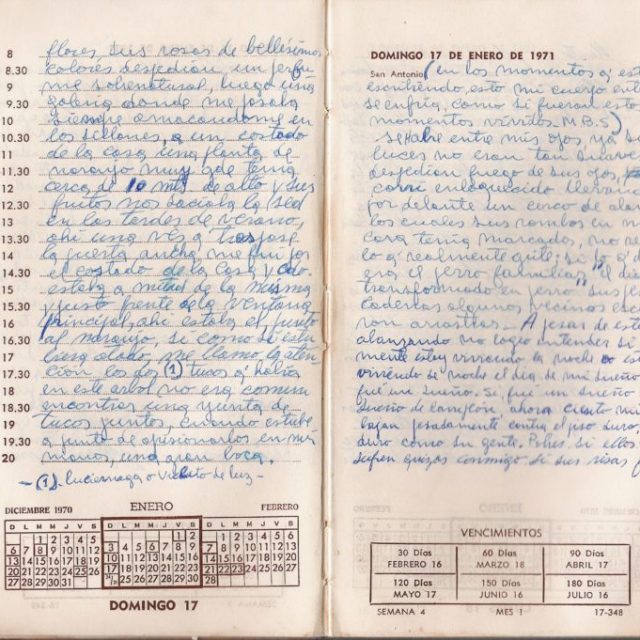 8 flores, sus rosas de bellísimos
8.30 colores despedían un perfu
9 me sobrenatural, luego una
9.30 galería donde me pasaba
10 siempre amacandome en
10.30 los sillones, a un costado
11 de la casa una planta de
11.30 naranjo muy gde tenía
12 cerca de 10 mts de alto y sus
12.30 frutos nos saciaba la sed
13 en las tardes de verano,
13.30 ahí una vez a
14 la puerta ancha me fui por
14.30 el costado de la casa y cdo.
15 estaba a mitad de la misma
15.30 y justo frente de la ventana
16 principal, ahí estaba el
16.30 al naranjo, si como si estu
17 biera alado, me llamo la aten
17.30 ción los dos (1) tucos q' había
18 en este arbol no era comun
18.30 encontrar una yunta de
19 tucos juntos, cuando estube
19.30 a punto de apisionarlos en mis
20 manos, una gran boca.
- (1). luciernaga o vichito de luz -
DICIEMBRE 1970 ENERO FEBRERO
D L M M J V S
1 2 3 4 5
6 7 8 9 10 11 12
13 14 15 16 17 18 19
20 21 22 23 24 25 26
27 28 29 30 31
D L M M J V S
1 2
3 4 5 6 7 8 9
10 11 12 13 14 15 16
17 18 19 20 21 22 23
24/31 25 26 27 28 29 30
D L M M J V S
1 2 3 4 5 6
7 8 9 10 11 12 13
14 15 16 17 18 19 20
21 22 23 24 25 26 27
28
DOMINGO 17
DOMINGO 17 DE ENERO DE 1971
San Antonio (en los momentos q' est
escribiendo esto mi cuerpo ent
se enfría, como si fueran esto
momentos vividos. M.B.S)
Se halle entre mis ojos ya su
luces no eran tan suave
despedían fuego de sus ojos,
corrí enloquecido llevan
por delante un cerco de alam
los cuales sus rombos en mi
cara tenía marcados, no
lo q' realmente quite: si
era el perro familiar, "el d
transformado en perro" sus
cadenas algunos vecinos esc
ron arrastras - A pesar de est
alcanzando no logro entender si
mente estoy viviendo la noche o es
viviendo de noche el día de mi sueño
fué un sueño. Si, fué un sueño
sueño de campeón, ahora cuanto m
bajan pesadamente contra el piso duro,
duro como su gente. Pobres si ellos
sufren quizas conmigo si sus risas
VENCIMIENTOS
30 Días 60 Días 90 Días
FEBRERO 16 MARZO 18 ABRIL 17
120 Días 150 Días 180 Días
MAYO 17 JUNIO 16 JULIO 16
SEMANA 4 MES 1 17-348